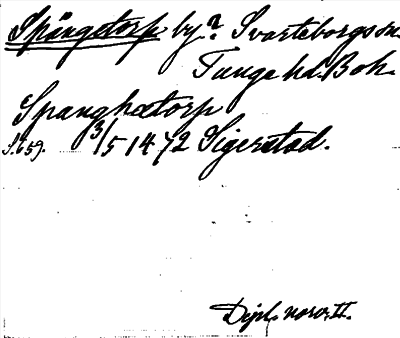 Spångetorp by? Svarteborgs sn.
Tunge hd. Boh.
Spanghatorp
S. 659. 3/5 1472 Sigerstad.
Dipl. norv. II.